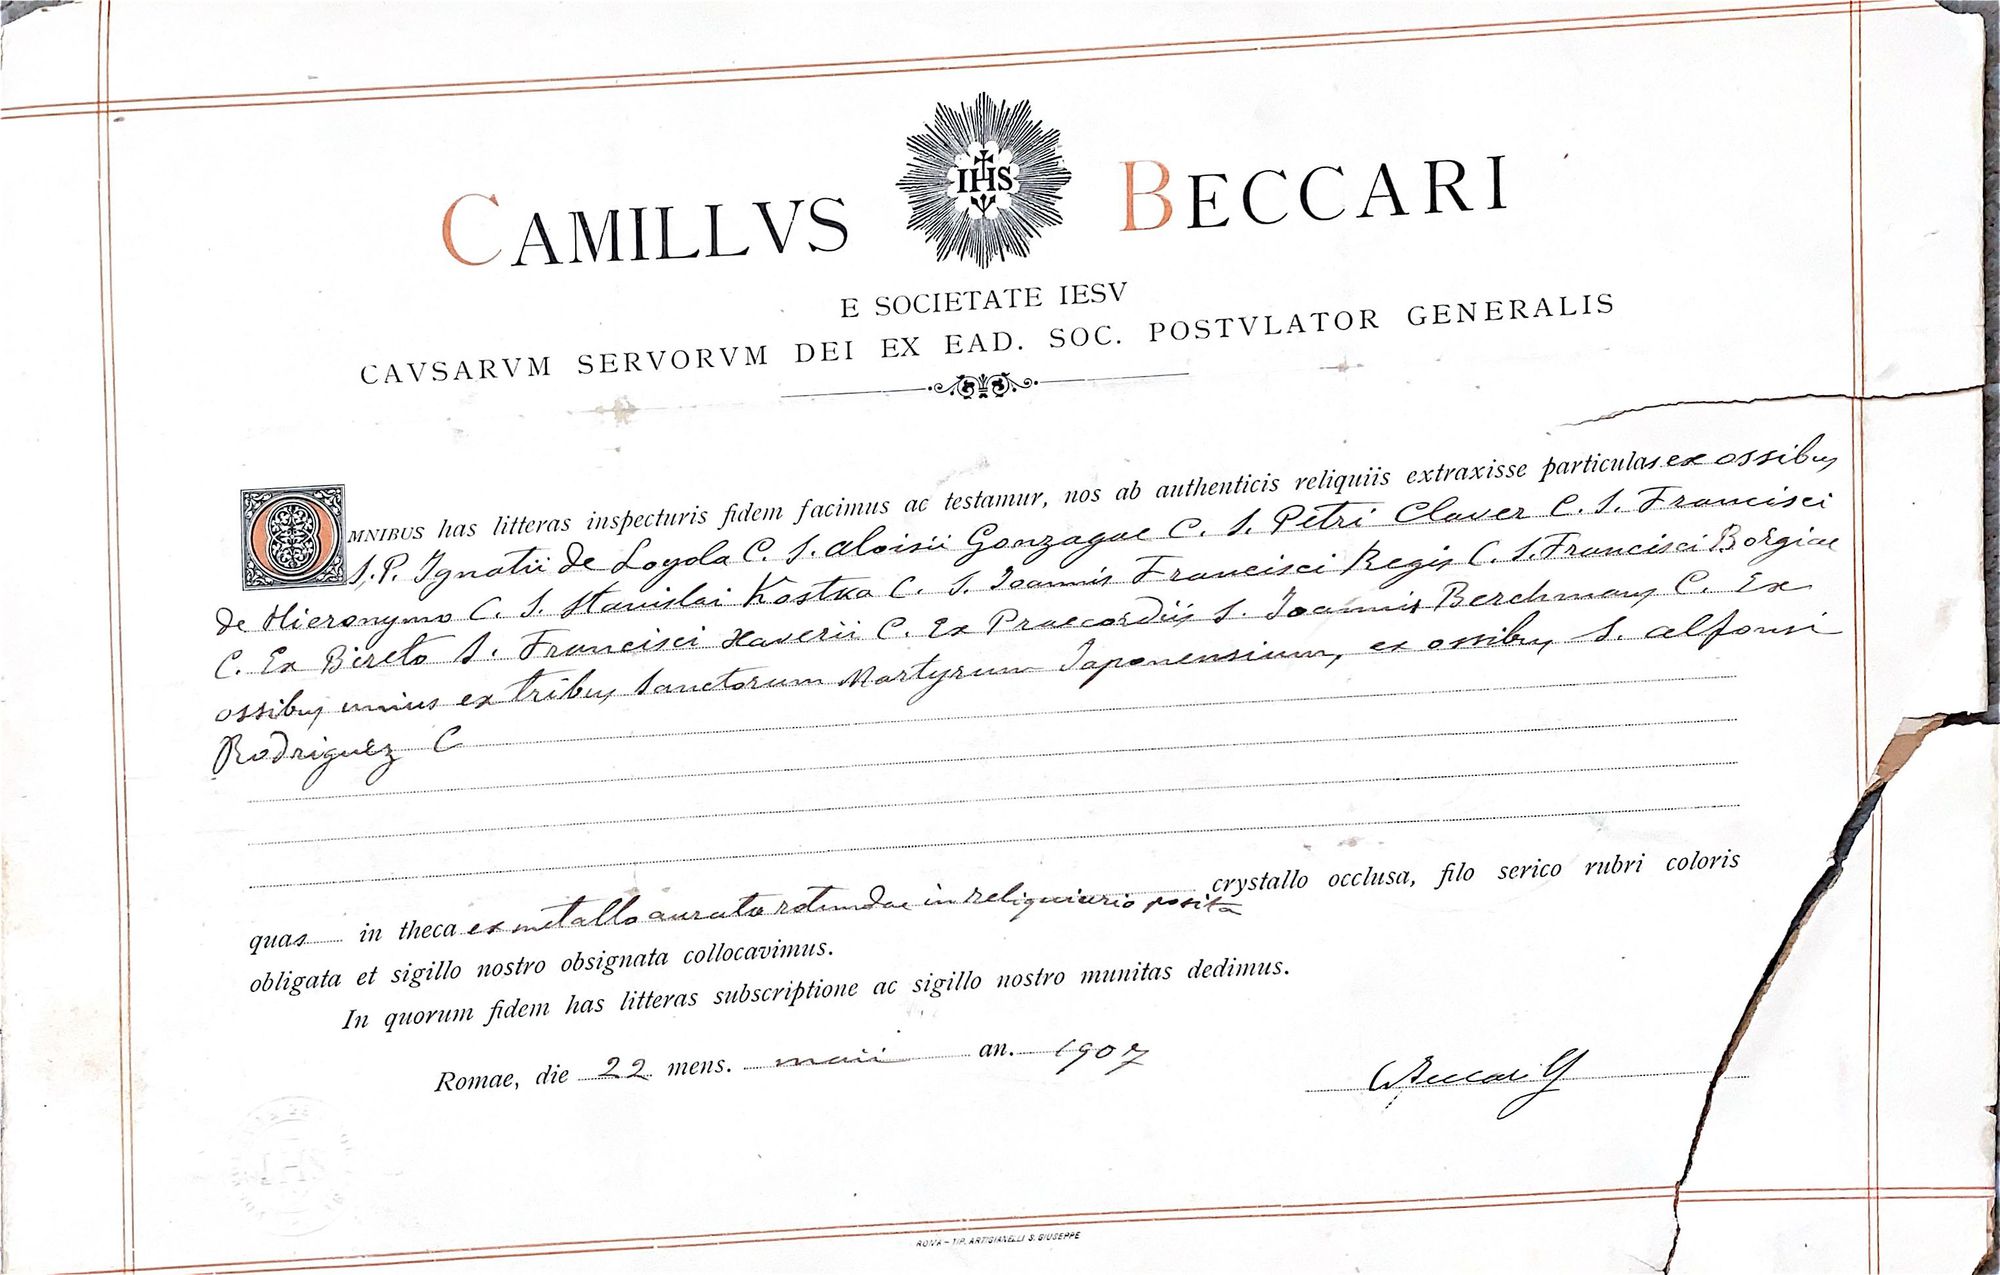 CAMILLVS IHS BECCARI
E SOCIETATE IESV
CAVSARVM SERVORVM DEI EX EAD. SOC. POSTVLATOR GENERALIS
OMNIBUS has litteras inspecturis fidem facimus ac testamur, nos ab authenticis reliquiis extraxisse particulas ex ossibus
S. P. Ignatii de Loyola C. S. Aloisii Gonzagae C. S. Petri Claver C. S. Francisci
de Hieronymo C. S. Stanislai Kostka C. S. Joannis Francisci Regis C. S. Francisci Borgiae
C. Ex Bireto S. Francisci Xaverii C. Ex Praecordiis S. Joannis Berchmans C. Ex
ossibus unius ex tribus Sanctorum Martyrum Japonensium, ex ossibus S. Alfonsi
Rodriguez C
quas in theca ex metallo aurato rotundae in reliquiario posita crystallo occlusa, filo serico rubri coloris
obligata et sigillo nostro obsignata collocavimus.
In quorum fidem has litteras subscriptione ac sigillo nostro munitas dedimus.
Romae, die 22 mens. maii an. 1907
C. Beccari SJ
ROMA - TIP. ARTIGIANELLI S. GIUSEPPE